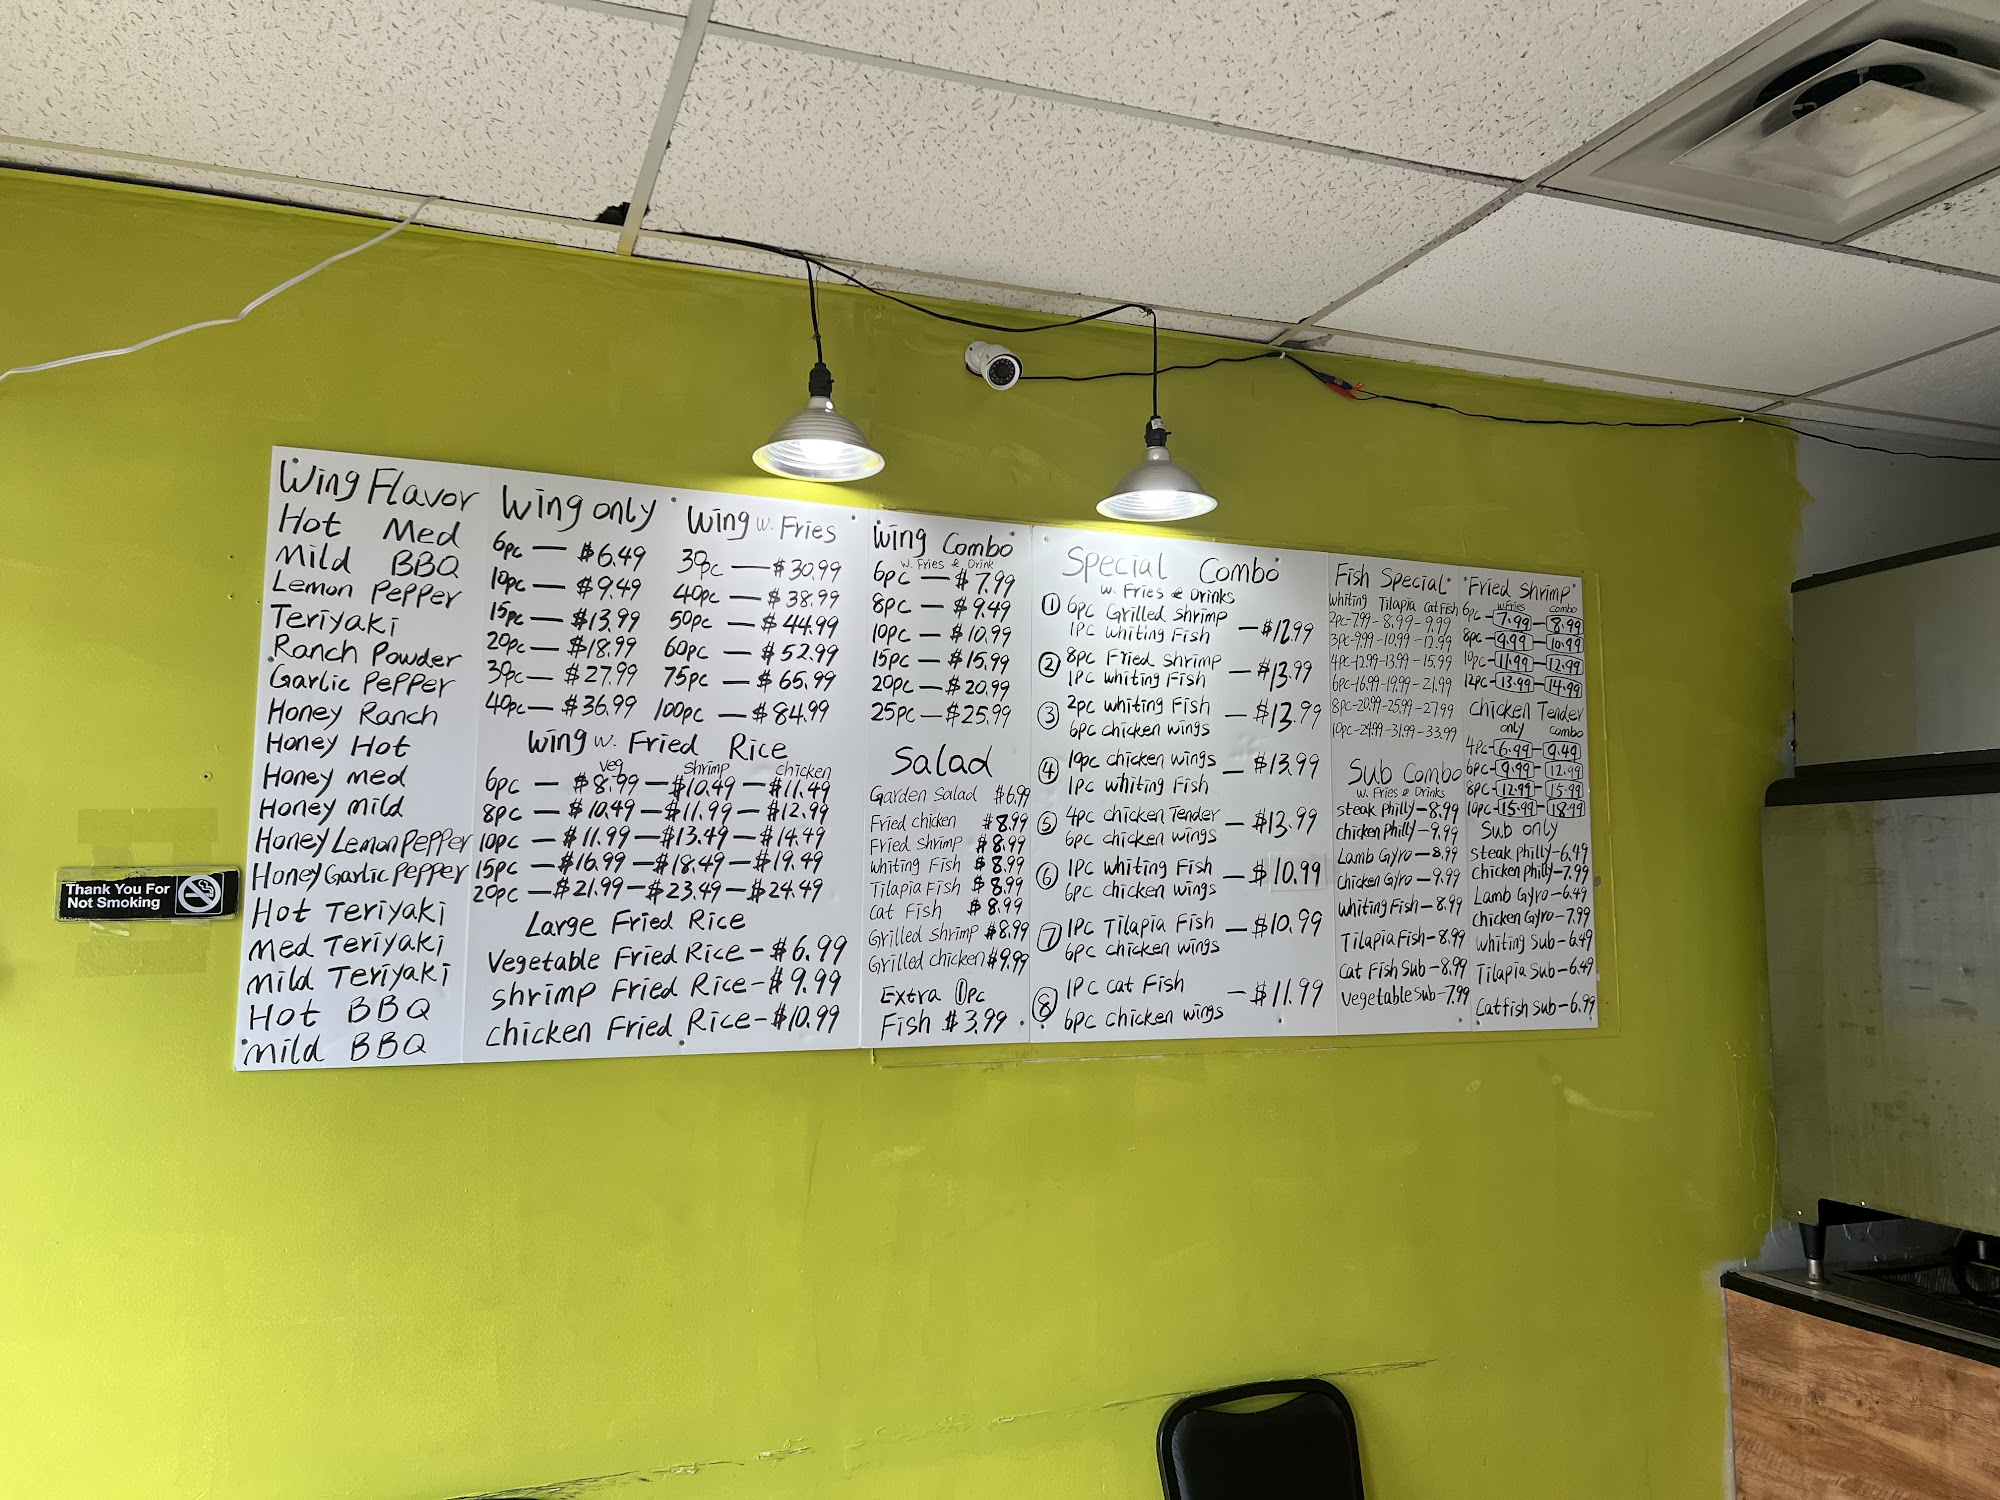 Thank You For
Not Smoking
Wing Flavor
Hot Med
Mild BBQ
Lemon Pepper
Teriyaki
Ranch Powder
Garlic Pepper
Honey Ranch
Honey Hot
Honey med
Honey mild
Honey Lemon Pepper
Honey Garlic Pepper
Hot Teriyaki
Med Teriyaki
Mild Teriyaki
Hot BBQ
Mild BBQ
Wing only
6pc — $6.49
10pc — $9.49
15pc — $13.99
20pc — $18.99
30pc — $27.99
40pc — $36.99
Wing w. Fries
30pc — $30.99
40pc — $38.99
50pc — $44.99
60pc — $52.99
75pc — $65.99
100pc — $84.99
Wing w. Fried Rice
veg shrimp chicken
6pc — $8.99 — $10.49 — $11.49
8pc — $10.49 — $11.99 — $12.99
10pc — $11.99 — $13.49 — $14.49
15pc — $16.99 — $18.49 — $19.49
20pc — $21.99 — $23.49 — $24.49
Large Fried Rice
Vegetable Fried Rice - $6.99
shrimp Fried Rice - $9.99
chicken Fried Rice - $10.99
Wing Combo
w. Fries & Drink
6pc — $7.99
8pc — $9.49
10pc — $10.99
15pc — $15.99
20pc — $20.99
25pc — $25.99
Salad
Garden Salad $6.99
Fried chicken $8.99
Fried shrimp $8.99
Whiting Fish $8.99
Tilapia Fish $8.99
Cat Fish $8.99
Grilled shrimp $8.99
Grilled chicken $9.99
Extra 1pc
Fish $3.99
Special Combo
w. Fries & Drinks
① 6pc Grilled shrimp
1pc whiting Fish — $12.99
② 8pc Fried shrimp
1pc whiting Fish — $13.99
③ 2pc whiting Fish
6pc chicken wings — $13.99
④ 10pc chicken wings
1pc whiting Fish — $13.99
⑤ 4pc chicken Tender
6pc chicken wings — $13.99
⑥ 1pc whiting Fish
6pc chicken wings — $10.99
⑦ 1pc Tilapia Fish
6pc chicken wings — $10.99
⑧ 1pc cat Fish
6pc chicken wings — $11.99
Fish Special
Whiting Tilapia Catfish
2pc-7.99-8.99-9.99
3pc-9.99-10.99-12.99
4pc-12.99-13.99-15.99
6pc-16.99-19.99-21.99
8pc-20.99-25.99-27.99
10pc-24.99-31.99-33.99
Sub Combo
w. Fries & Drinks
steak philly-8.99
chicken philly-9.99
Lamb Gyro-8.99
chicken Gyro-9.99
Whiting Fish-8.99
Tilapia Fish-8.99
Cat Fish Sub-8.99
Vegetable Sub-7.99
Fried shrimp
w. Fries combo
6pc-7.99-8.99
8pc-9.99-10.99
10pc-11.99-12.99
12pc-13.99-14.99
Chicken Tender
only combo
4pc-6.99-9.49
6pc-9.99-12.99
8pc-12.99-15.99
10pc-15.99-18.99
Sub only
steak philly-6.49
chicken philly-7.99
Lamb Gyro-6.49
chicken Gyro-7.99
whiting Sub-6.49
Tilapia Sub-6.49
Catfish Sub-6.99